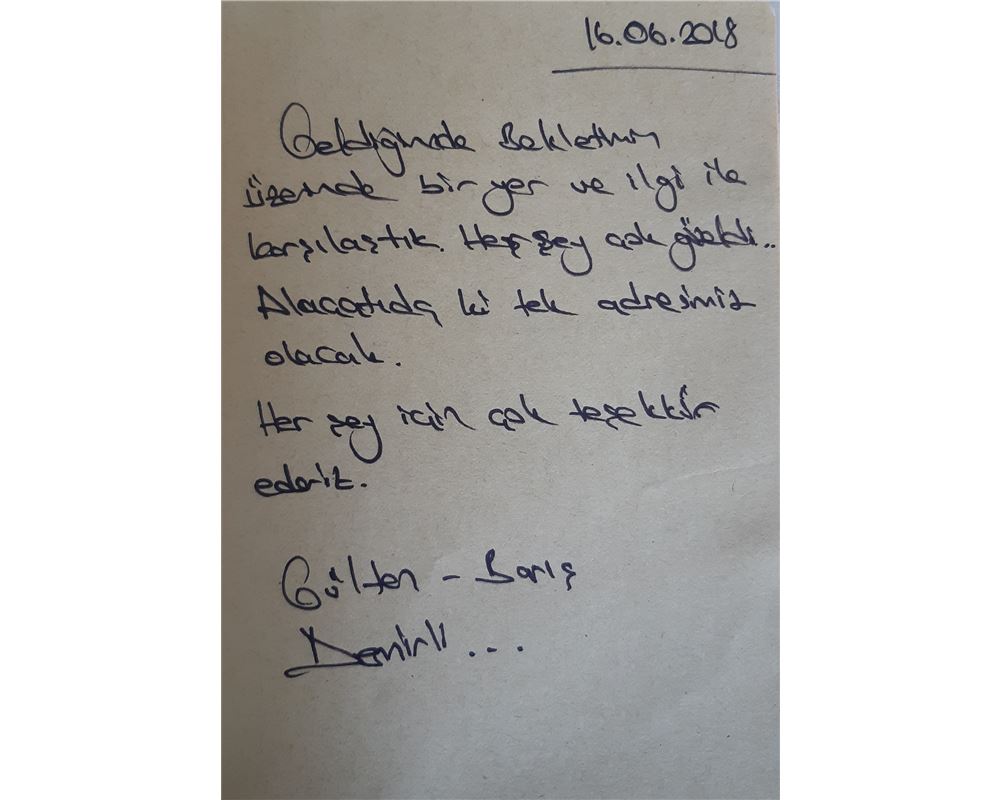 16.06.2018
Geldiğimde Bekletinin
üzerinde bir yer ve ilgi ile
karşılaştık. Her şey çok güzeldi..
Alaçatıda ki tek adresimiz
olacak.
Her şey için çok teşekkür
ederiz.
Gülten - Barış
Demirli...